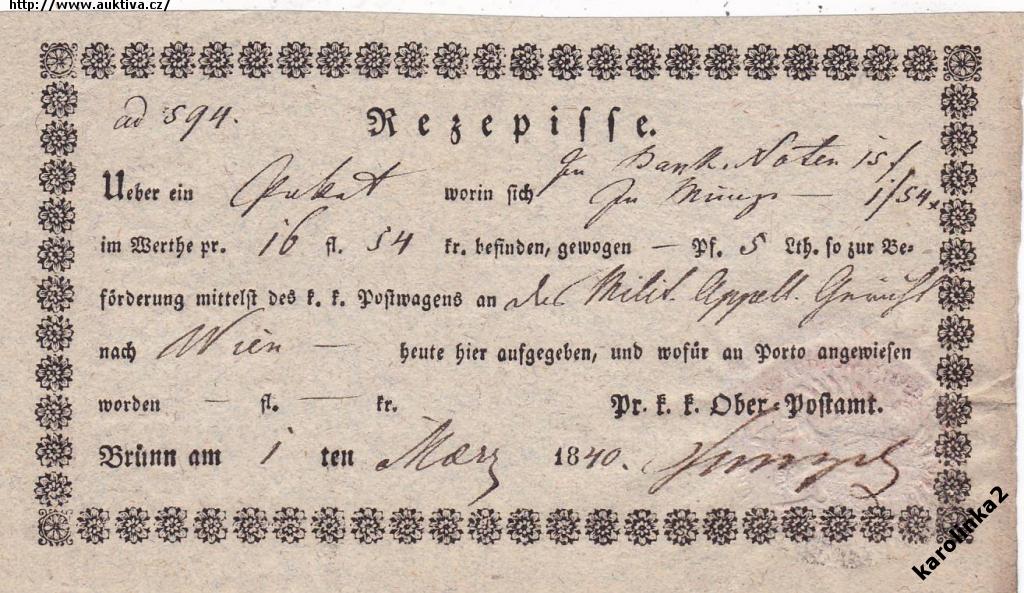 http://www.auktiva.cz/
ad 594.
Rezepisse.
In Bank-Noten 15 f
Ueber ein Paket worin sich In Münze — 1 f 54 x
im Werthe pr. 16 fl. 54 kr. befinden, gewogen — Pf. 5 Lth. so zur Be-
förderung mittelst des k. k. Postwagens an das Milit. Appell. Gericht
nach Wien — heute hier aufgegeben, und wofür an Porto angewiesen
worden — fl. — kr. Pr. k. k. Ober-Postamt.
Brünn am 1 ten März 1840.
karolinka2